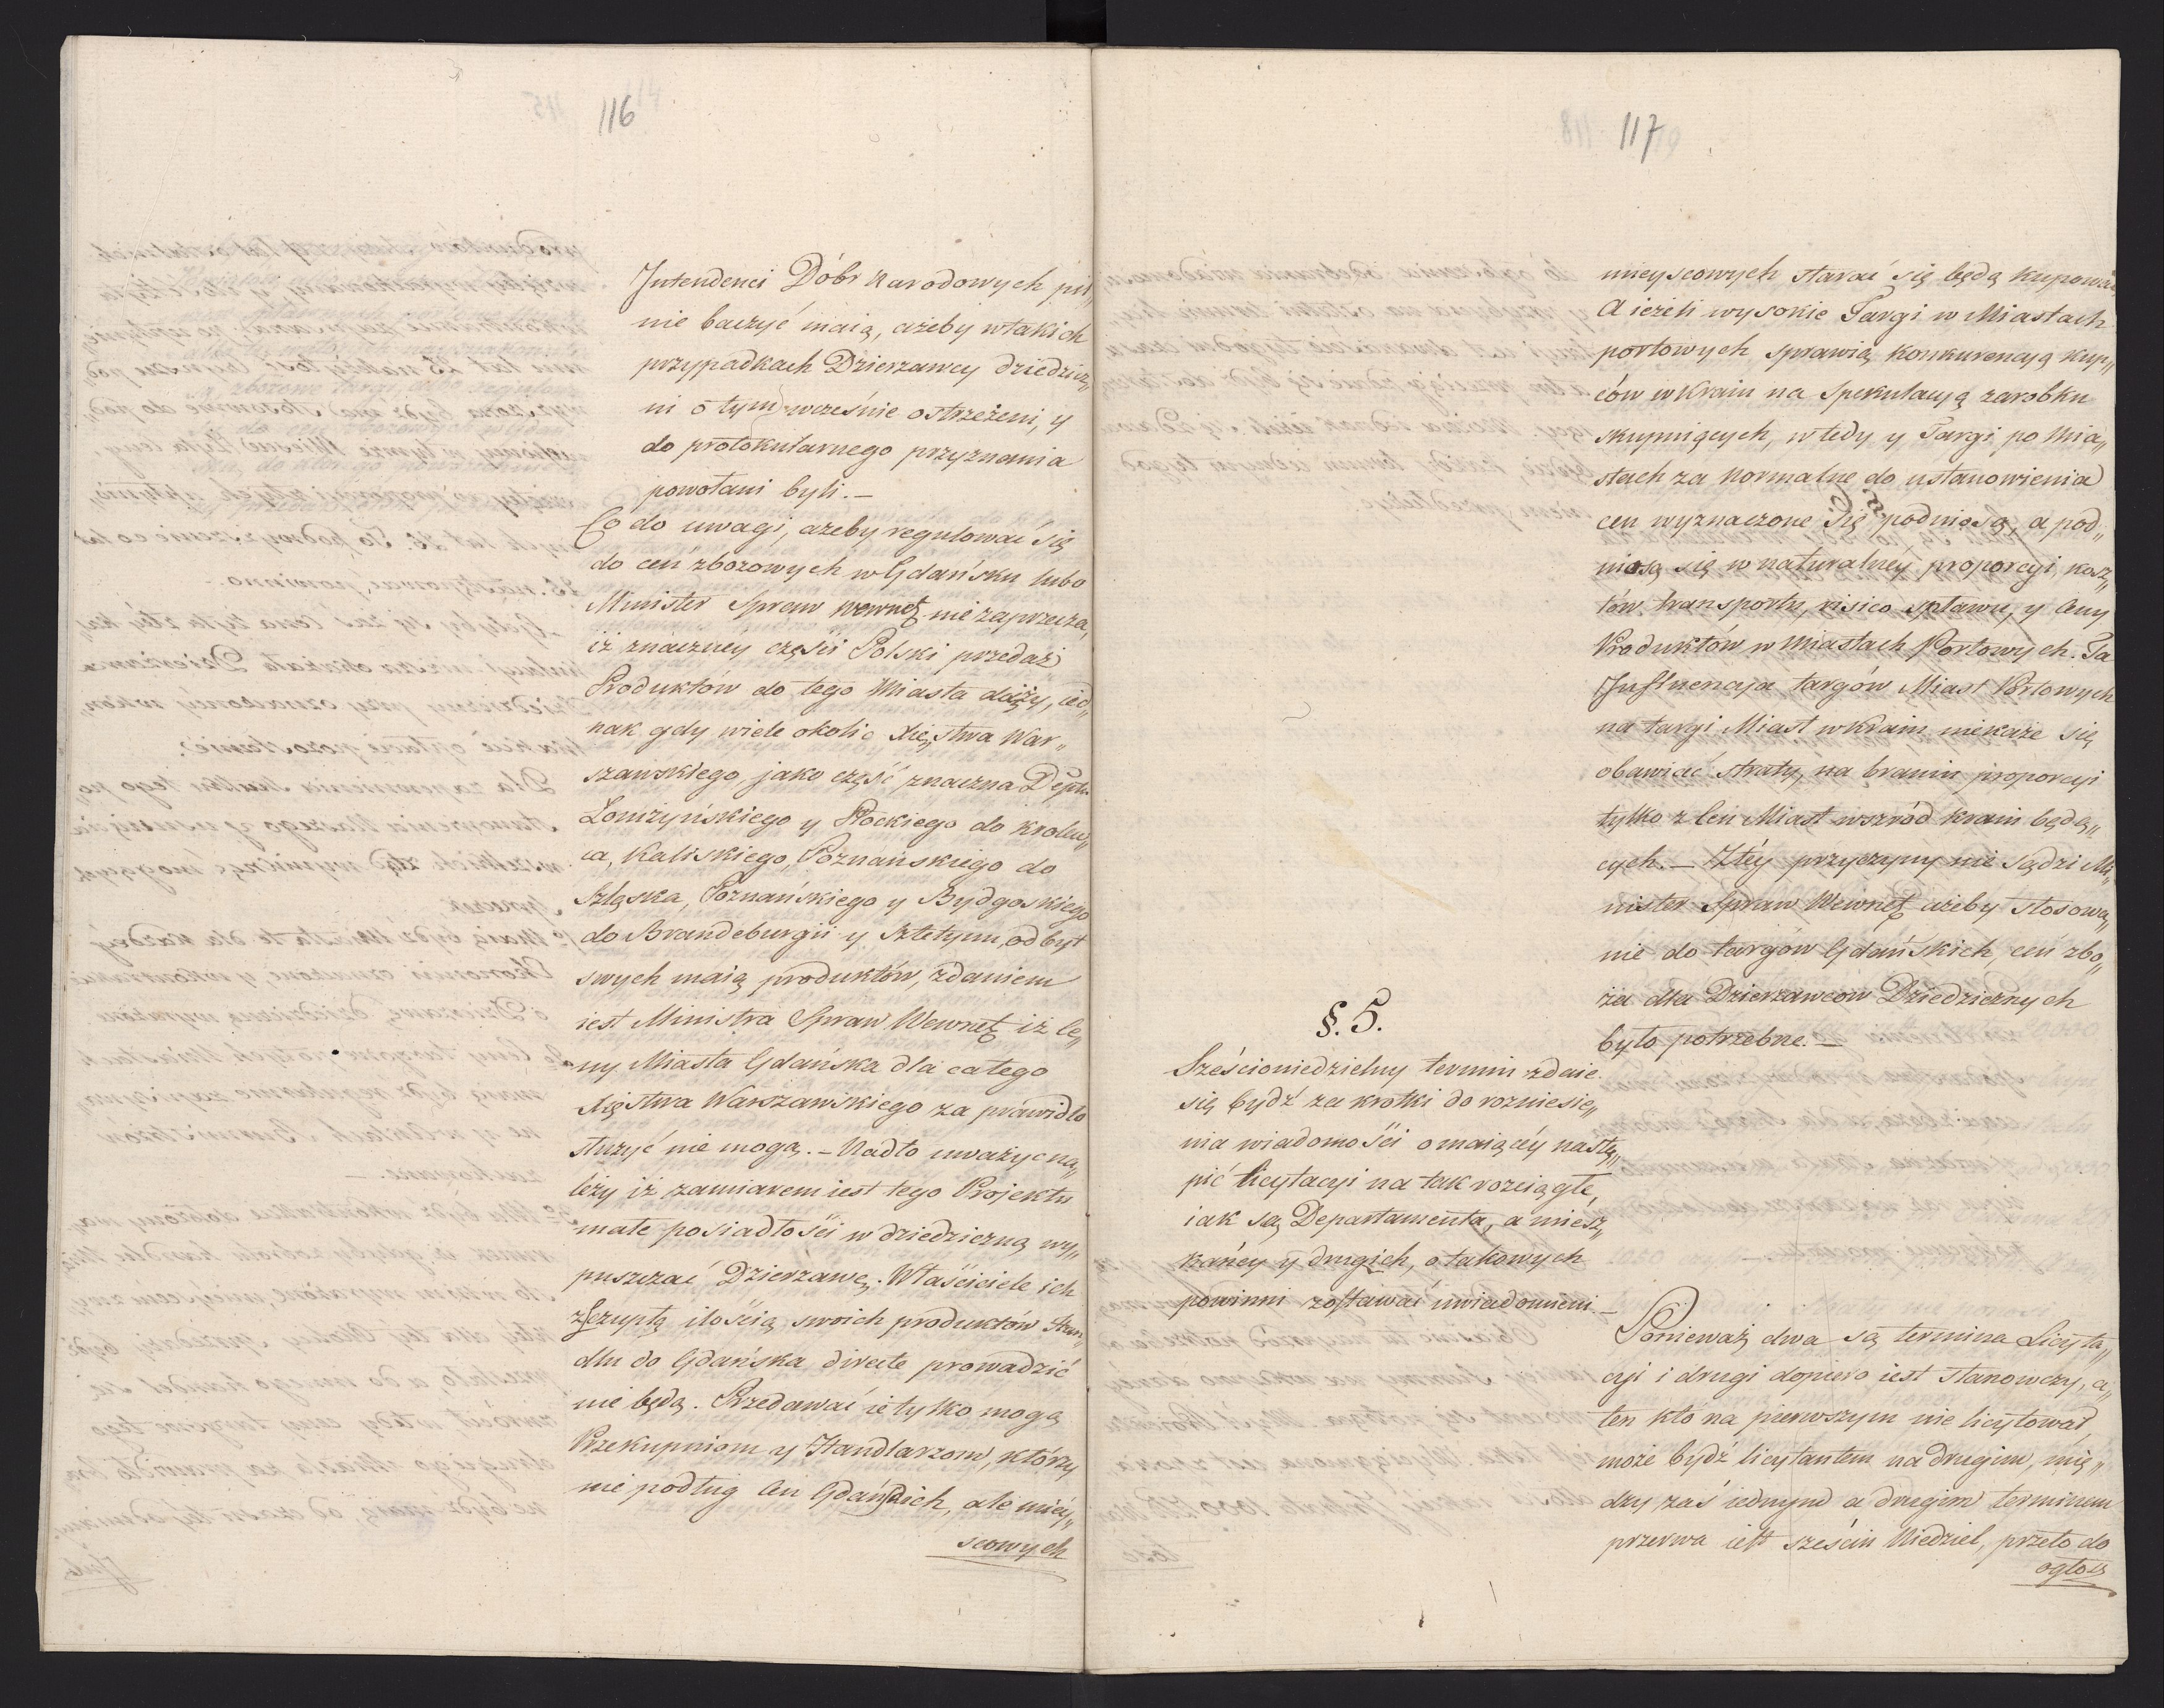 116
Intendenci Dóbr Narodowych pil„
nie baczyć maią, ażeby w takich
przypadkach Dzierzawcy dziedzicz„
ni o tym wcześnie ostrzeżeni, y
do protokularnego przyznania
powołani byli. —
Co do uwagi, ażeby regulować się
do cen zbożowych w Gdańsku lubo
Minister Spraw Wewnęt. nie zaprzecza,
iż znaczney części Polski przedaż
Produktów do tego Miasta dąży, ied„
nak gdy wiele okolic Xięstwa War„
szawskiego, jako część znaczna Deptu
Łomżyńskiego y Płockiego do Krolew„
ca, Kaliskiego, Poznańskiego do
Szląska, Poznańskiego y Bydgoskiego
do Brandeburgii y Sztetynu, odbyt
swych maią produktów, zdaniem
iest Ministra Spraw Wewnęt. iż Ce„
ny Miasta Gdańska dla całego
Xięstwa Warszawskiego za prawidło
służyć nie mogą. — Nadto uważyć na„
leży iż zamiarem iest tego Projektu
małe posiadłości w dziedziczną wy„
puszczać Dzierzawę. Właściciele ich
z szczupłą ilością swoich produktów Han„
dlu do Gdańska directe prowadzić
nie będą. Przedawać ie tylko mogą
Przekupniom y Handlarzom, którzy
nie podług Cen Gdańskich, ale mięy„
scowych
117
mieyscowych starać się będą kupować
A ieżeli wysokie Targi w Miastach
portowych sprawią konkurencyą kup„
ców w Kraiu na spekulacyą zarobku
skupuiących, wtedy y Targi po Mia„
stach za normalne do ustanowienia
cen wyznaczone się podniosą, a pod„
niosą się w naturalnéy proporcyi, kosz„
tów transportu, risico spławu, y Ceny
Produktów w Miastach Portowych. Ta
Influencya targów Miast Portowych
na targi Miast w Kraiu niekaże się
obawiać straty, na braniu proporcyi
tylko z Cen Miast wszród kraiu będą„
cych. — Z téy przyczyny nie sądzi Mi„
nister Spraw Wewnęt. ażeby stosowa„
nie do targów Gdańskich, cen zbo„
ża dla Dzierzawców Dziedzicznych
było potrzebne. —
§. 5.
Sześcioniedzielny termin zdaie
się bydź za krotki do rozniesie„
nia wiadomości o maiącéy nastą„
pić licytacyi na tak rozciągłe,
iak są Departamenta, a miesz„
kańcy y drugich, o takowych
powinni zostawać uwiadomieni —
Ponieważ dwa są termina Licyta„
cyi i drugi dopiero iest stanowczy, a„
ten kto na pierwszym nie licytował,
może bydź licytantem na drugim, mię„
dzy zaś iednym a drugim terminem
przerwa iest sześciu Niedziel, przeto do
ogło„